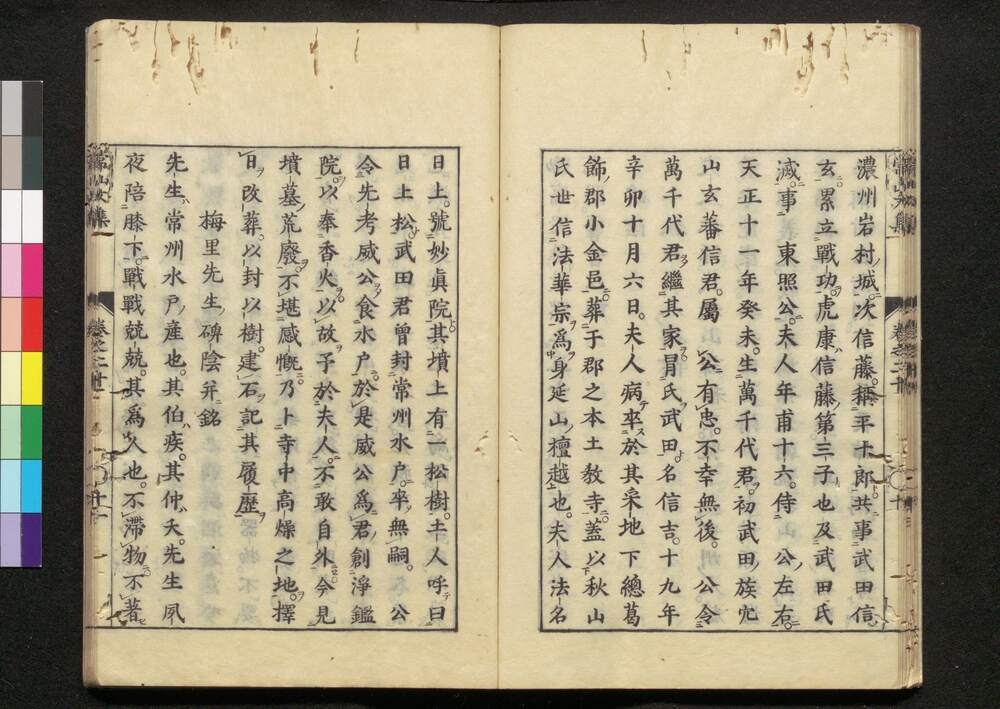 濃州岩村城。次信藤。稱平十郎。共事武田信
玄。累立戰功。虎康信藤第三子也。及武田氏
滅。事　東照公。夫人年甫十六。侍　公左右。
天正十一年癸未。生萬千代君。初武田族穴
山玄蕃信君。屬　公有忠。不幸無後。　公令
萬千代君繼其家。冐氏武田。名信吉。十九年
辛卯十月六日。夫人病卒於其采地下總葛
飾郡小金邑。葬于郡之本土教寺。蓋以秋山
氏世信法華宗。爲身延山檀越也。夫人法名
日上。號妙眞院。其墳上有一松樹。土人呼曰
日上松。武田君曾封常州水戸。卒無嗣。　公
令先考威公食水戸。於是威公爲君創淨鑑
院。以奉香火。以故予於夫人。不敢自外。今見
墳墓荒廢。不堪感慨。乃卜寺中高燥之地。擇
日改葬。以封以樹。建石記其履歷。
梅里先生碑陰并銘
先生常州水戸産也。其伯疾。其仲夭。先生夙
夜陪膝下。戰戰兢兢。其爲人也。不滯物。不著
常山文集